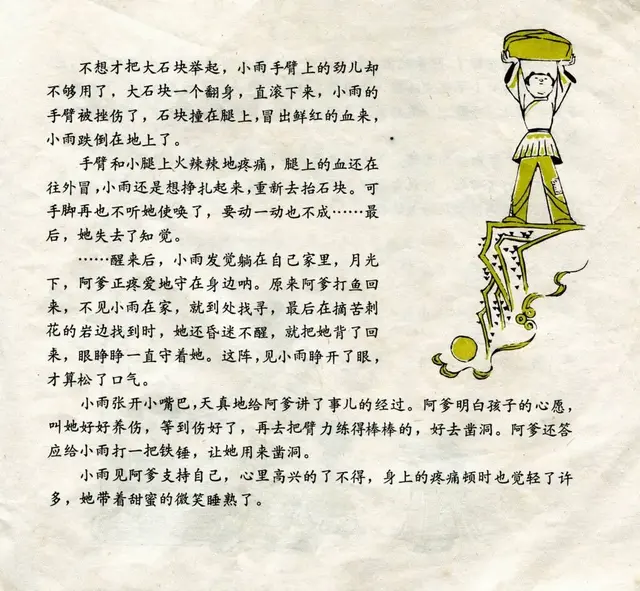 不想才把大石块举起，小雨手臂上的劲儿却
不够用了，大石块一个翻身，直滚下来，小雨的
手臂被挫伤了，石块撞在腿上，冒出鲜红的血来，
小雨跌倒在地上了。
手臂和小腿上火辣辣地疼痛，腿上的血还在
往外冒，小雨还是想挣扎起来，重新去抬石块。可
手脚再也不听她使唤了，要动一动也不成……最
后，她失去了知觉。
……醒来后，小雨发觉躺在自己家里，月光
下，阿爹正疼爱地守在身边呐。原来阿爹打鱼回
来，不见小雨在家，就到处找寻，最后在摘苦刺
花的岩边找到时，她还昏迷不醒，就把她背了回
来，眼睁睁一直守着她。这阵，见小雨睁开了眼，
才算松了口气。
小雨张开小嘴巴，天真地给阿爹讲了事儿的经过。阿爹明白孩子的心愿，
叫她好好养伤，等到伤好了，再去把臂力练得棒棒的，好去凿洞。阿爹还答
应给小雨打一把铁锤，让她用来凿洞。
小雨见阿爹支持自己，心里高兴的了不得，身上的疼痛顿时也觉轻了许
多，她带着甜蜜的微笑睡熟了。